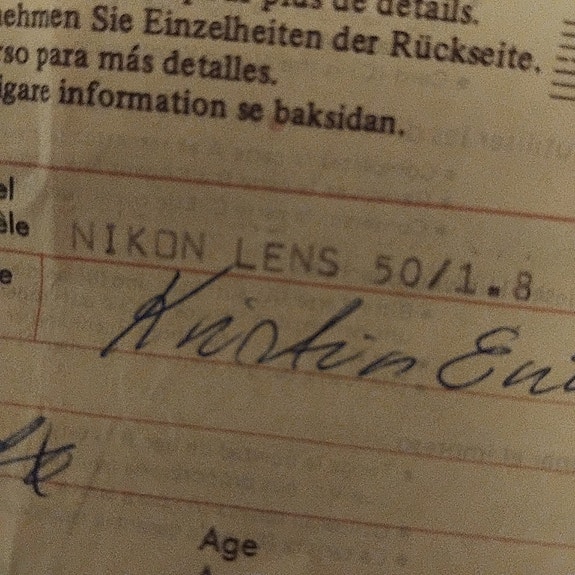 plus de détails.
nehmen Sie Einzelheiten der Rückseite.
rso para más detalles.
igare information se baksidan.
el
èle
NIKON LENS 50/1.8
e
Kristin
Age